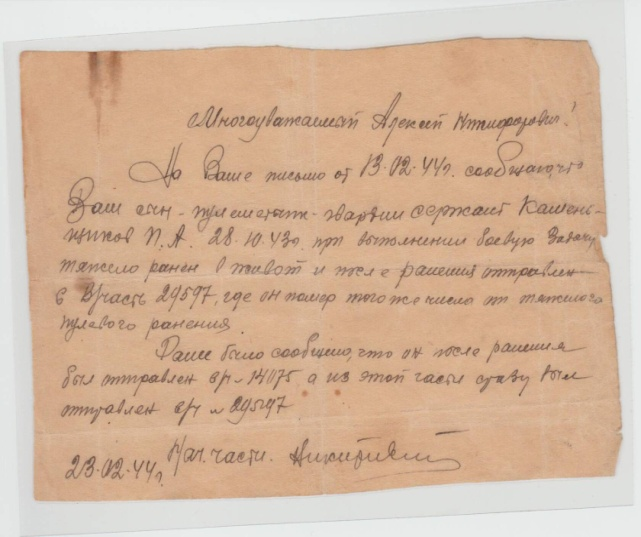 Многоуважаемый Алексей!
На Ваше письмо от 13.02.44г. сообщаю, что
Ваш сын - пулеметчик - гвардии сержант Камень-
щиков П.А. 28.10.43г. при выполнении боевую задачу
тяжело ранен в живот и после ранения отправлен
в в/часть 29597, где он помер того же числа от тяжелого
пулевого ранения.
Ранее было сообщено, что он после ранения
был отправлен в/ч 14075, а из этой части сразу был
отправлен в/ч 29597
23.02.44г. Нач. части.